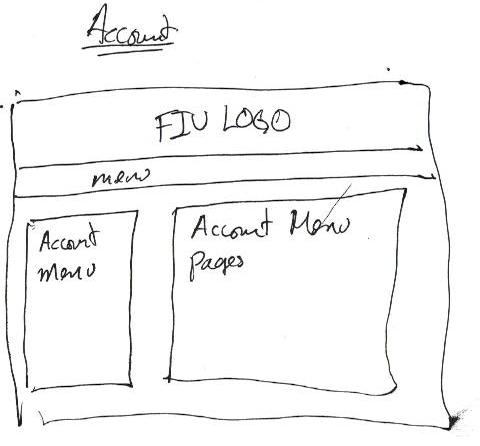 Account
FIU LOGO
menu
Account
menu
Account Menu
Pages